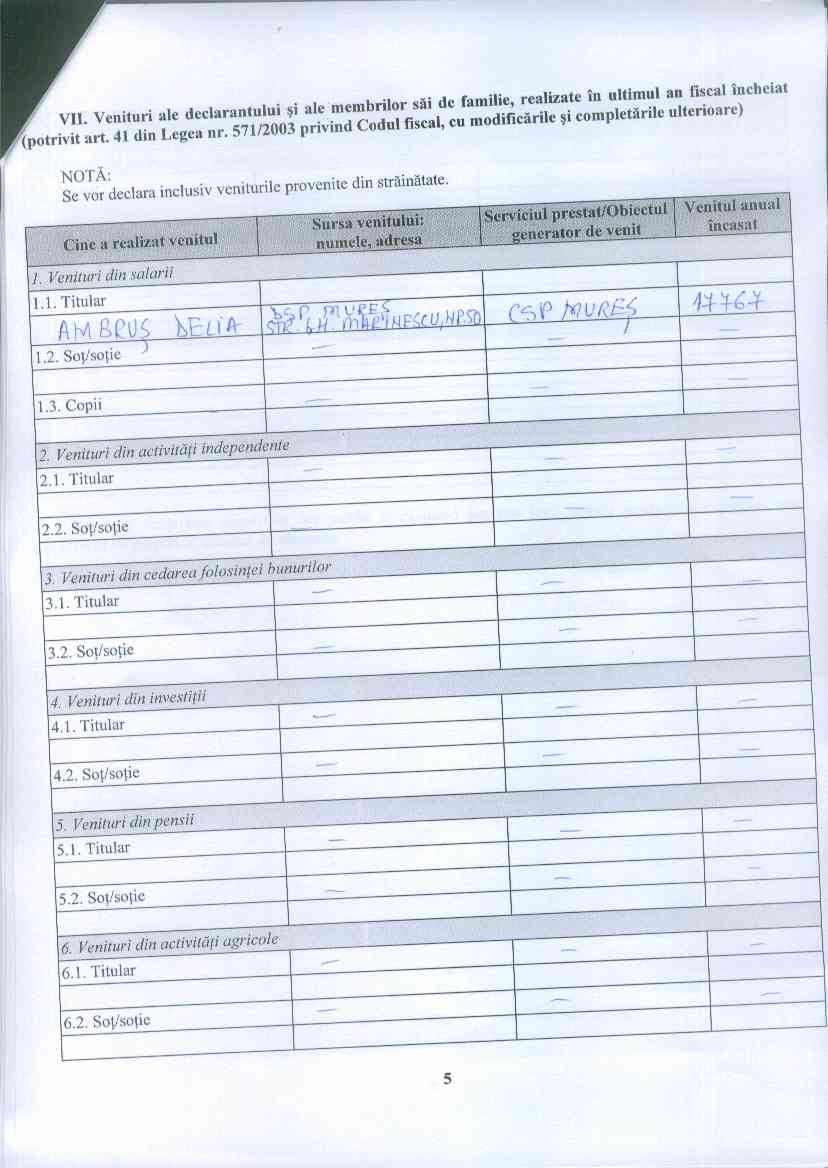 VII. Venituri ale declarantului şi ale membrilor săi de familie, realizate în ultimul an fiscal încheiat
(potrivit art. 41 din Legea nr. 571/2003 privind Codul fiscal, cu modificările şi completările ulterioare)
NOTĂ:
Se vor declara inclusiv veniturile provenite din străinătate.
Cine a realizat venitul | Sursa venitului: numele, adresa | Serviciul prestat/Obiectul generator de venit | Venitul anual încasat
1. Venituri din salarii
1.1. Titular
AMBRUŞ DELIA | DSP MUREŞ STR. GH. MARINESCU, NR.50 | CSP MUREŞ | 17767
1.2. Soţ/soţie | — | — | —
1.3. Copii | — | — | —
2. Venituri din activităţi independente
2.1. Titular | — | — | —
2.2. Soţ/soţie | — | — | —
3. Venituri din cedarea folosinţei bunurilor
3.1. Titular | — | — | —
3.2. Soţ/soţie | — | — | —
4. Venituri din investiţii
4.1. Titular | — | — | —
4.2. Soţ/soţie | — | — | —
5. Venituri din pensii
5.1. Titular | — | — | —
5.2. Soţ/soţie | — | — | —
6. Venituri din activităţi agricole
6.1. Titular | — | — | —
6.2. Soţ/soţie | — | — | —
5